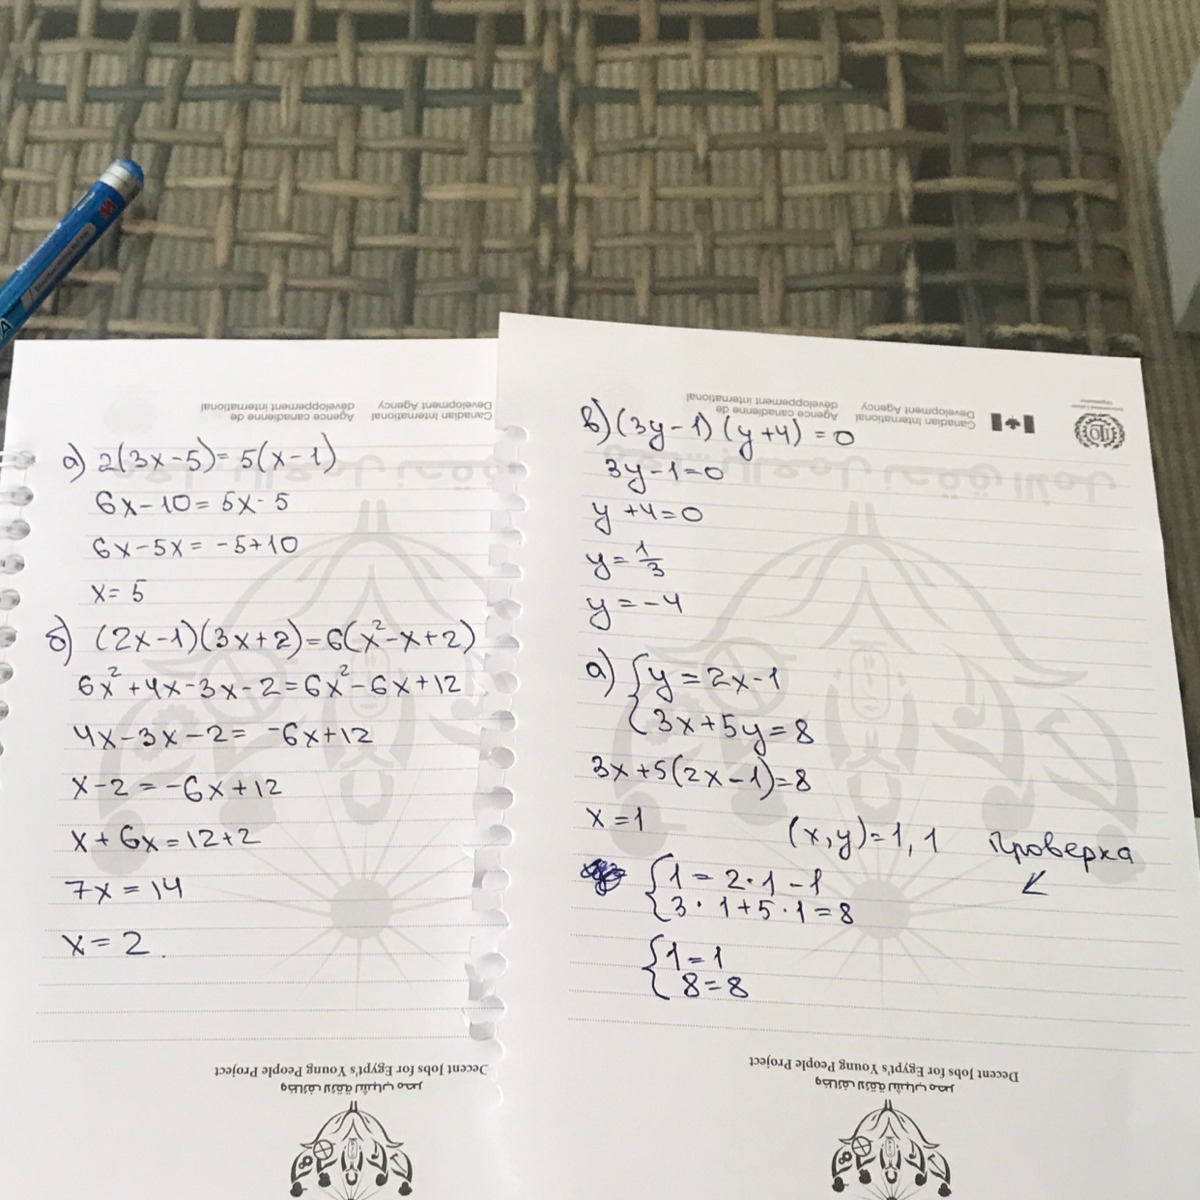 а) 2(3x-5)=5(x-1)
6x-10=5x-5
6x-5x=-5+10
x=5
б) (2x-1)(3x+2)=6(x²-x+2)
6x²+4x-3x-2=6x²-6x+12
4x-3x-2=-6x+12
x-2=-6x+12
x+6x=12+2
7x=14
x=2.
в) (3y-1)(y+4)=0
3y-1=0
y+4=0
y=1/3
y=-4
а) {y=2x-1
{3x+5y=8
3x+5(2x-1)=8
x=1
(x,y)=1,1 Проверка
{1=2·1-1
{3·1+5·1=8
{1=1
{8=8
Canadian International Development Agency
Agence canadienne de développement international
Canadian International Development Agency
Agence canadienne de développement international
Decent Jobs for Egypt's Young People Project
Decent Jobs for Egypt's Young People Project